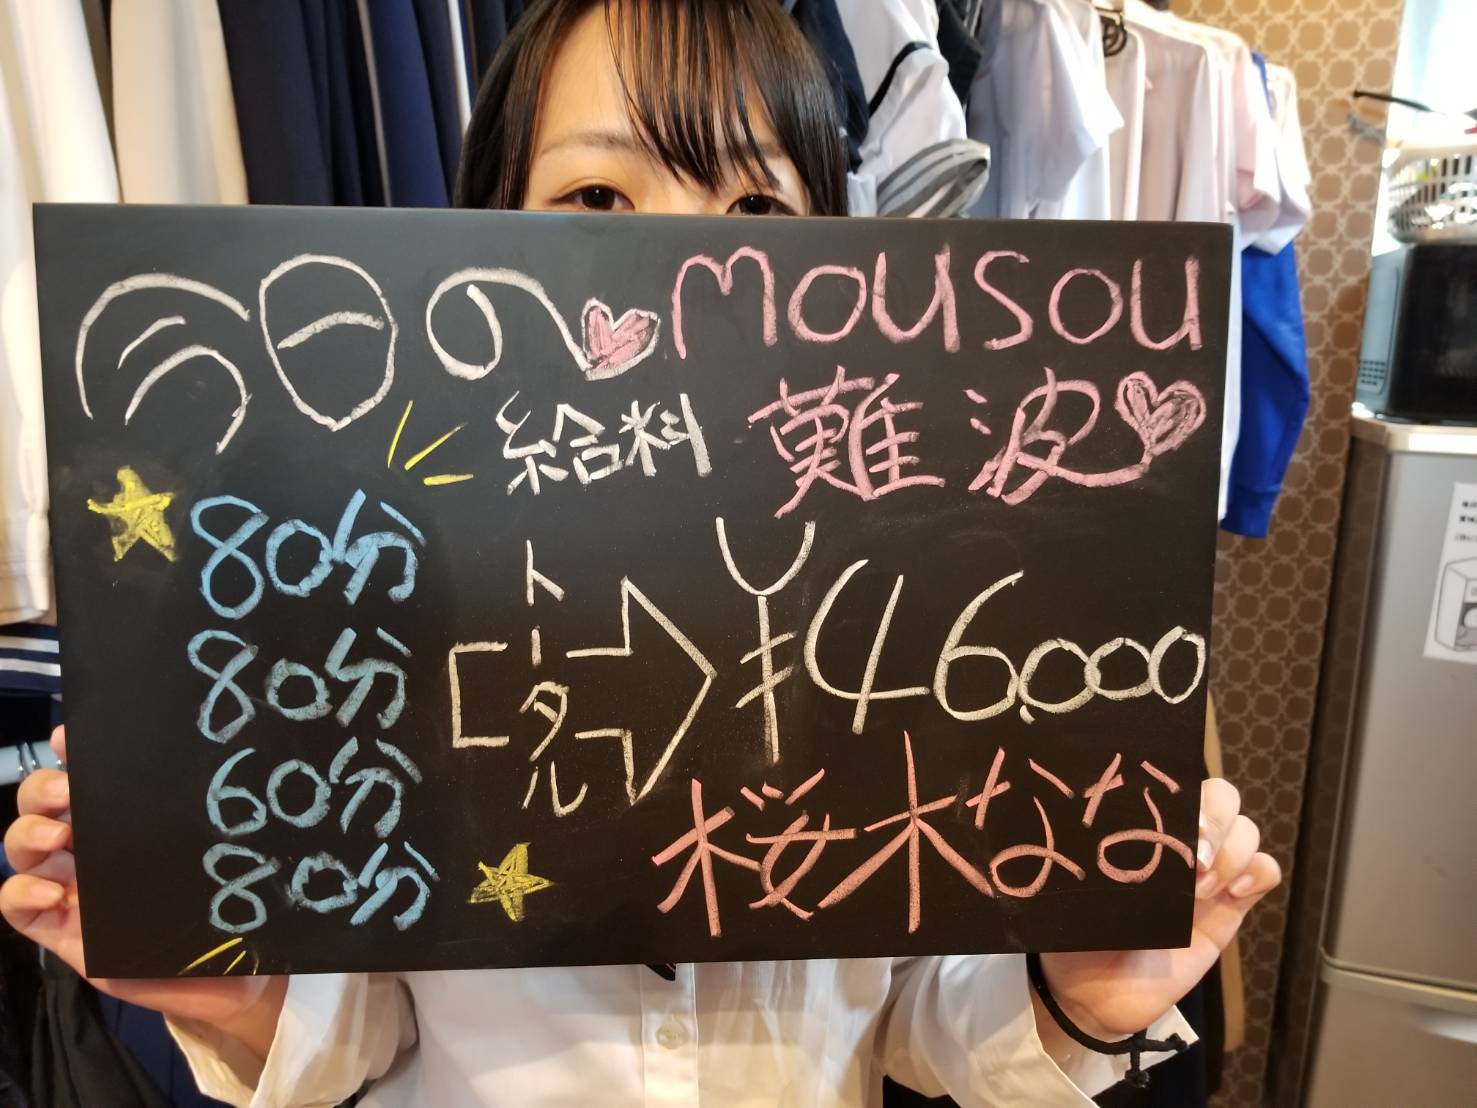 今日の mousou
給料 難波
80分
80分
60分
80分
トータル
¥46,000
桜木なな